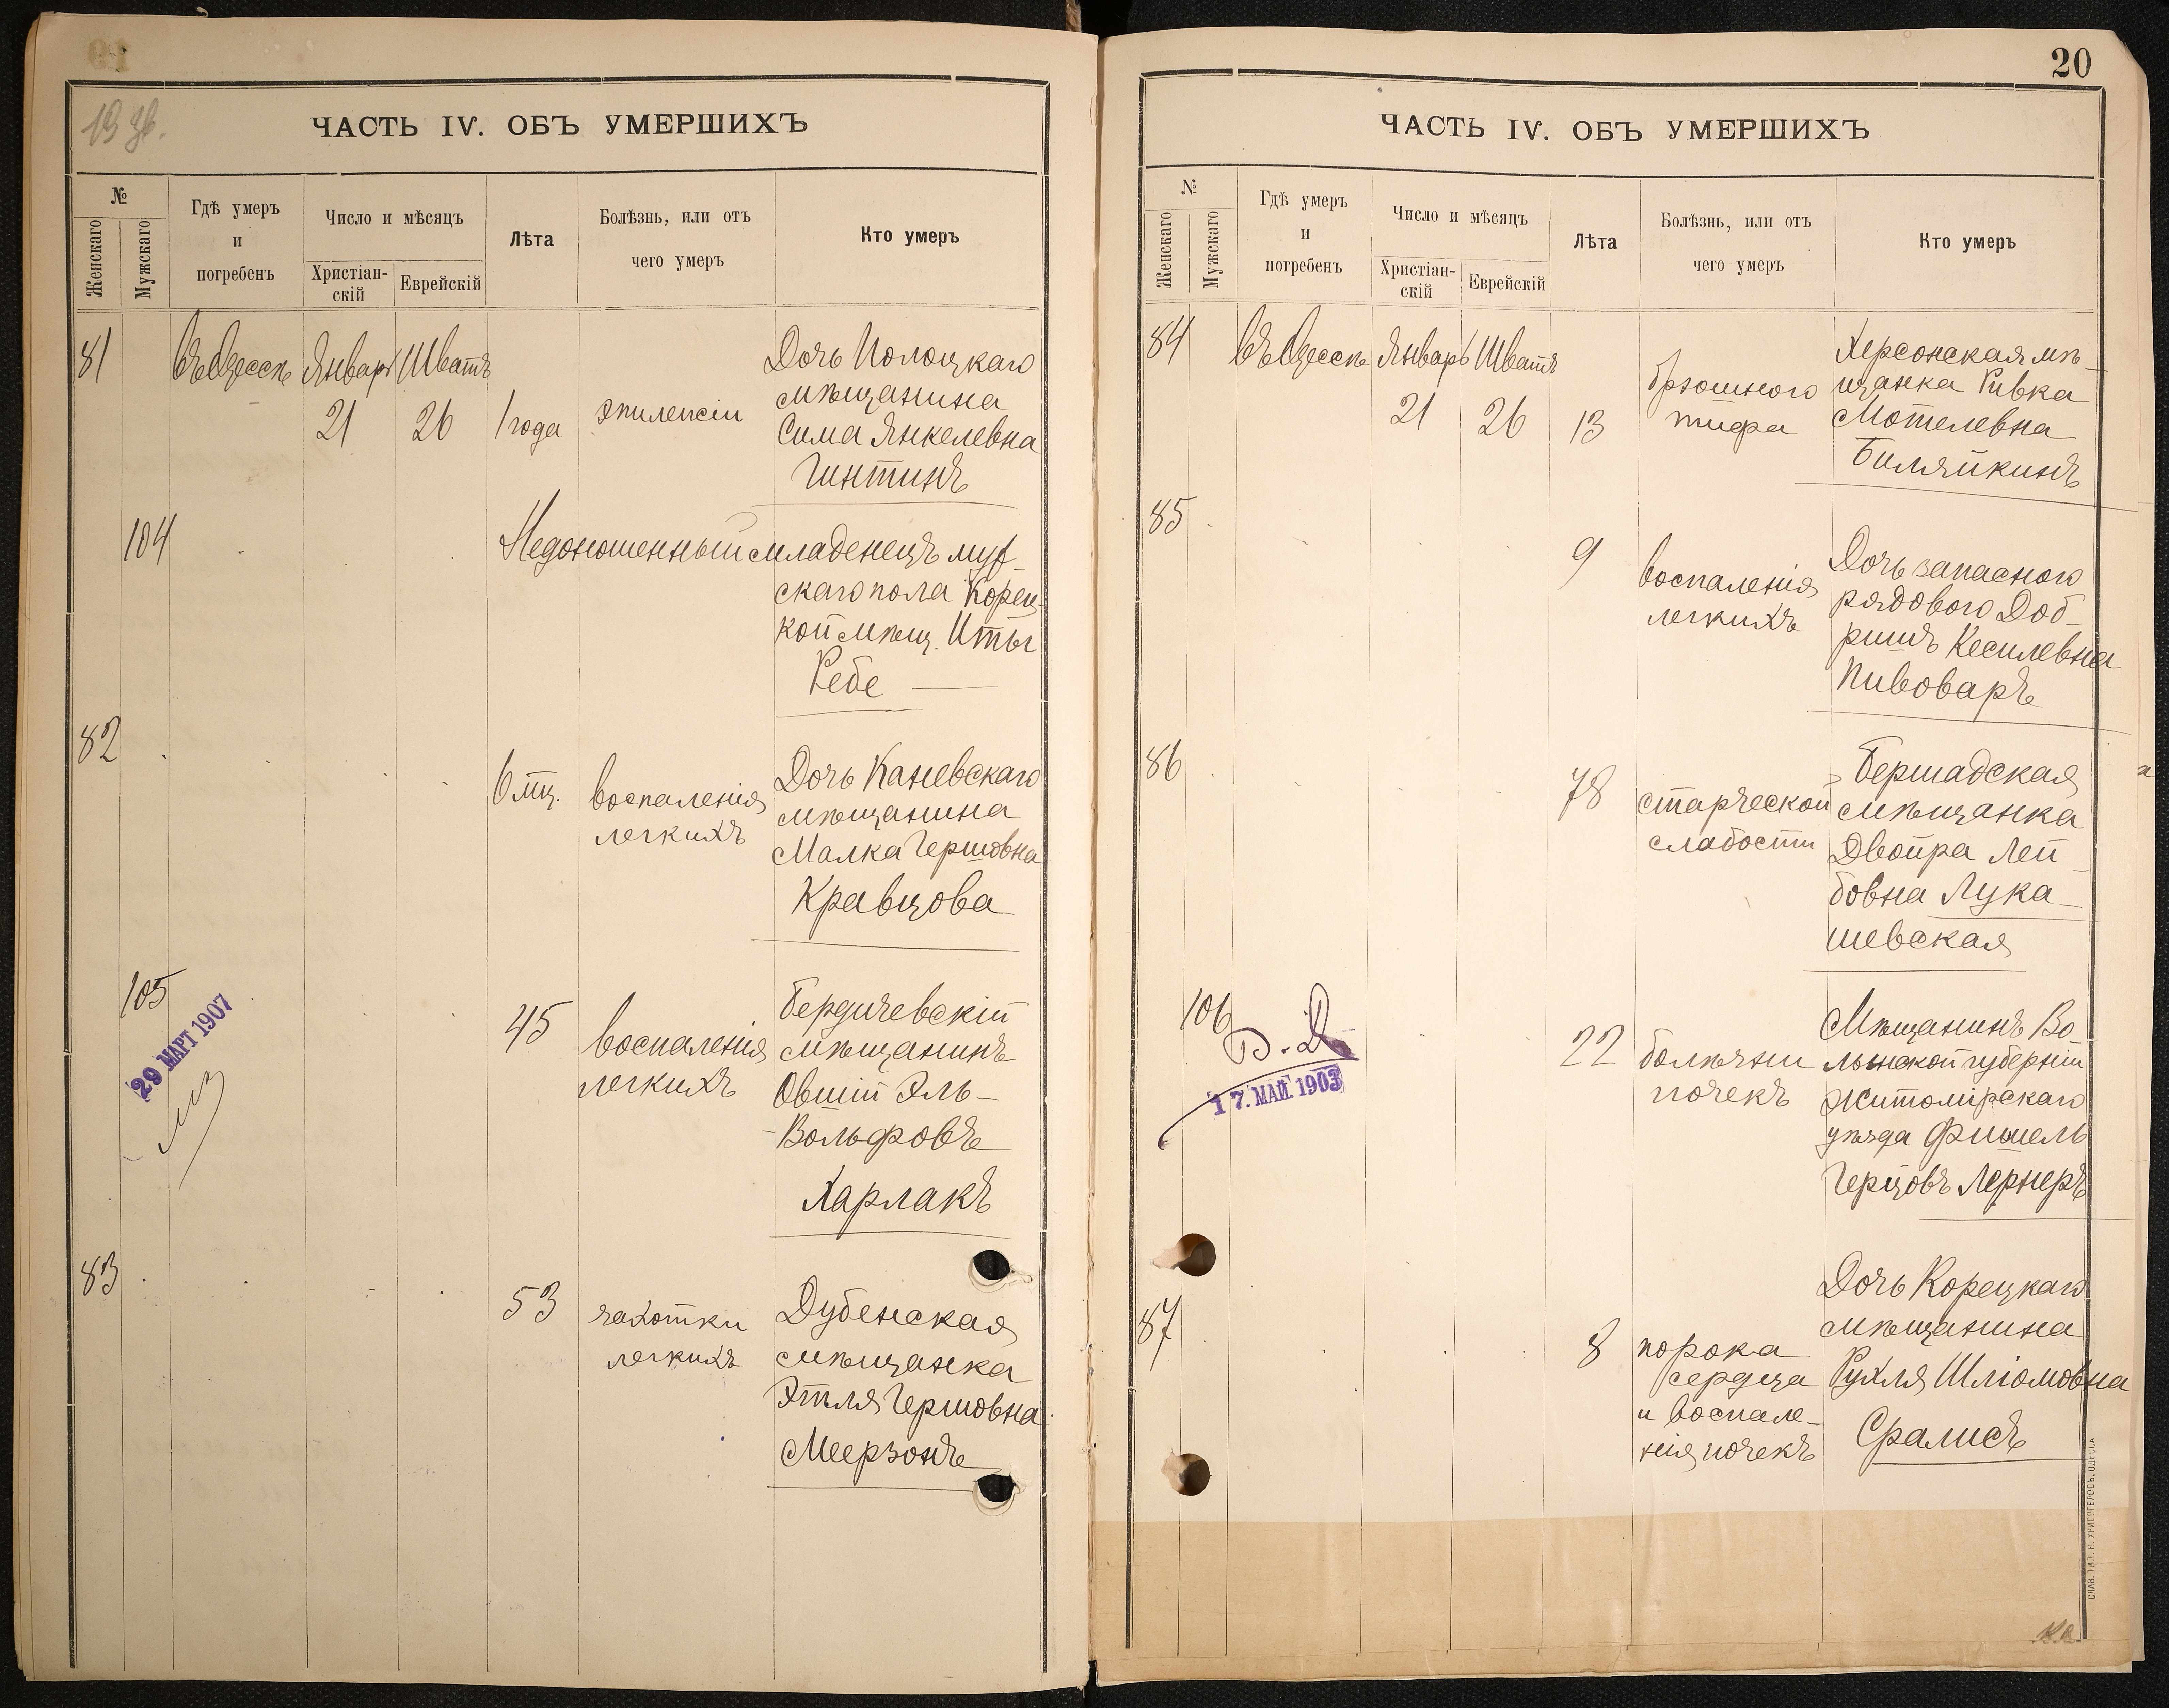 19 об.
ЧАСТЬ IV. ОБЪ УМЕРШИХЪ
№
Женскаго
Мужскаго
Гдѣ умеръ
и
погребенъ
Число и мѣсяцъ
Христіан-
скій
Еврейскій
Лѣта
Болѣзнь, или отъ
чего умеръ
Кто умеръ
81
въ Одессѣ
Январь
21
Шватъ
26
1 года
эпилепсіи
Дочь Полоцкаго
мѣщанина
Сима Янкелевна
Гинтинъ
104
Недоношенный младенецъ муж-
скаго пола Корец-
кой мѣщ. Иты
Ребе
82
6 мц.
воспаленія
легкихъ
Дочь Каневскаго
мѣщанина
Малка Гершовна
Кравцова
105
29 МАРТ 1907
45
воспаленія
легкихъ
Бердичевскій
мѣщанинъ
Овшій Эль-
Вольфовъ
Харлакъ
83
53
чахотки
легкихъ
Дубенская
мѣщанка
Этля Гершовна
Меерзонъ
20
ЧАСТЬ IV. ОБЪ УМЕРШИХЪ
№
Женскаго
Мужскаго
Гдѣ умеръ
и
погребенъ
Число и мѣсяцъ
Христіан-
скій
Еврейскій
Лѣта
Болѣзнь, или отъ
чего умеръ
Кто умеръ
84
въ Одессѣ
Январь
21
Шватъ
26
13
брюшного
тифа
Херсонская мѣ-
щанка Ривка
Мотелевна
Биляйкинъ
85
9
воспаленія
легкихъ
Дочь запасного
рядового Доб-
ришъ Кесилевна
Пивоваръ
86
78
старческой
слабости
Бершадская
мѣщанка
Двойра Лей-
бовна Лука-
шевская
106
В. Д.
17. МАЙ. 1903
22
болѣзни
почекъ
Мѣщанинъ Во-
лынской губерніи
Житомірскаго
уѣзда Фишель
Герцовъ Лернеръ
87
8
порока
сердца
и воспале-
нія почекъ
Дочь Корецкаго
мѣщанина
Рухля Шліомовна
Сралисъ